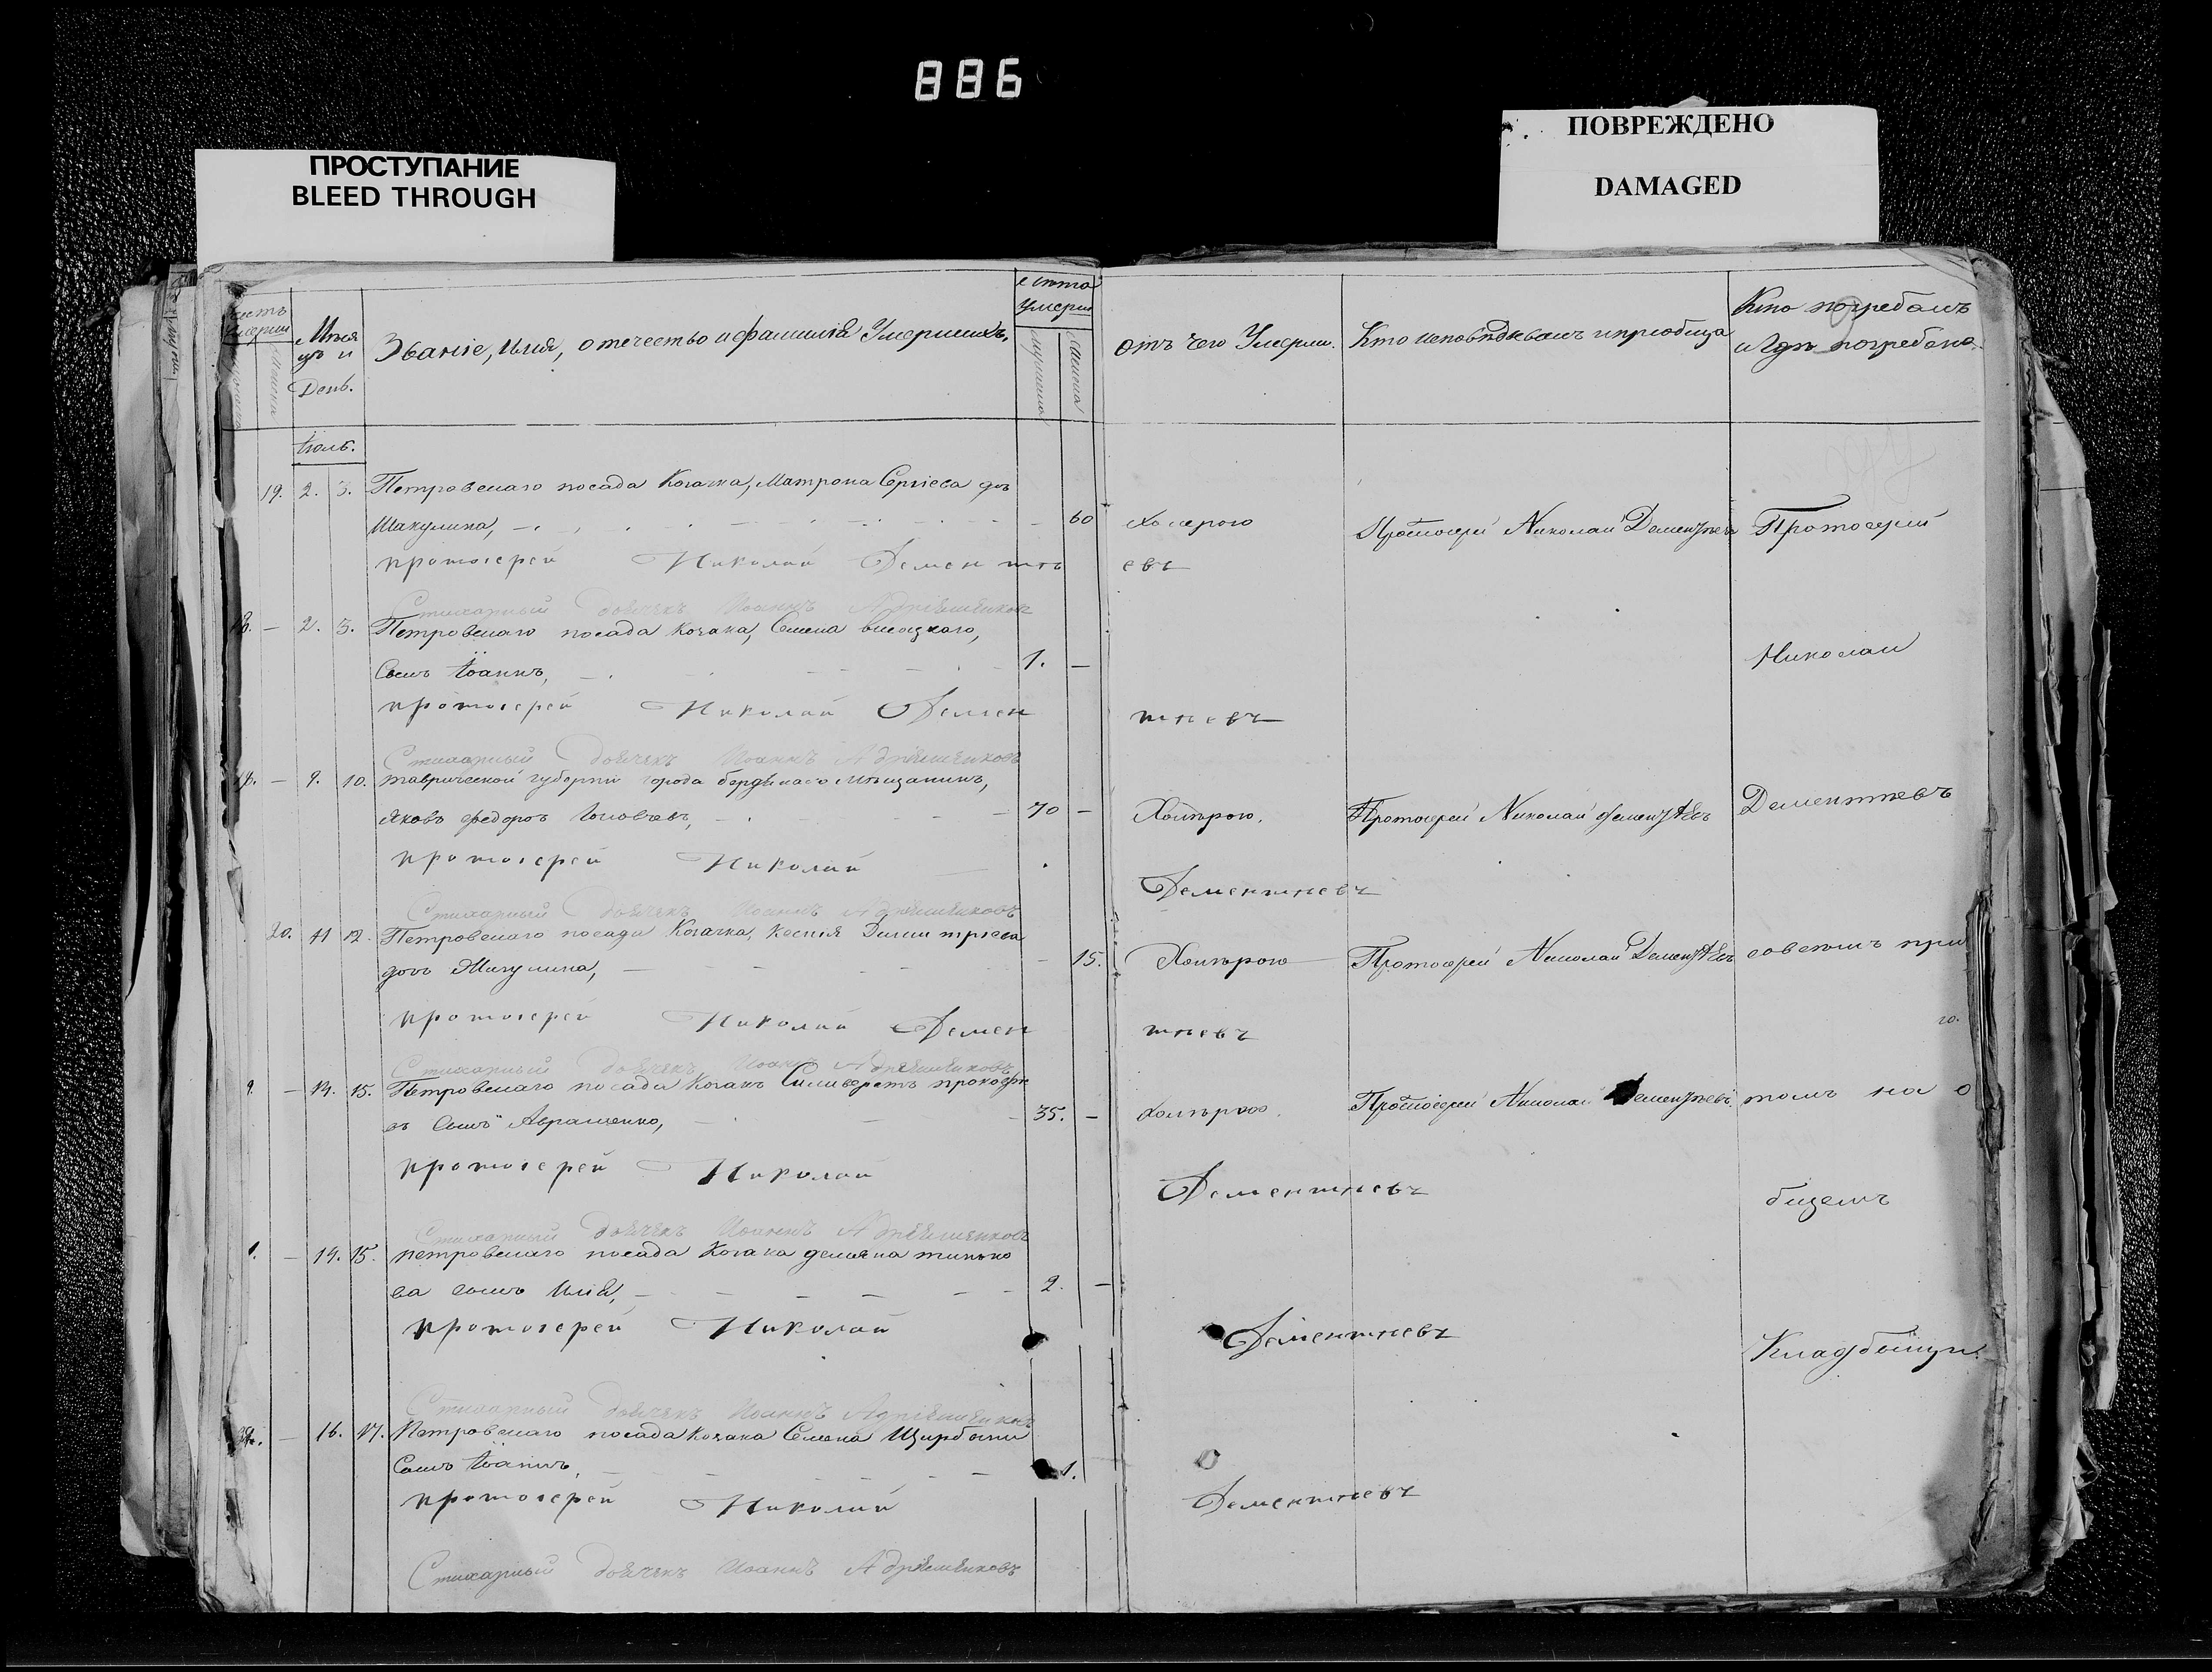 886
ПРОСТУПАНИЕ
BLEED THROUGH
ПОВРЕЖДЕНО
DAMAGED
Мѣся
цъ и
День.
Званіе, имя, отечество и фамилія Умершихъ.
Лѣта
Умерш
отъ чего Умерли.
Кто исповѣдывалъ и приобща
Кто погребалъ
и Гдѣ погребена.
Іюль.
19. 2. 3. Петровскаго посада Козачка, Матрона Сергіева доч
Шакулина, 60 Холерою Протоіерей Николай Дементьевъ Протоіерей
протоіерей Николай Дементь евъ
Стихарный дьячекъ Иоаннъ
— 2. 3. Петровскаго посада козака, Семена высоцкаго,
Сынъ Іоаннъ, 1. — Николаи
протоіерей Николай Демен тьевъ
Стихарный дьячекъ Иоаннъ
— 9. 10. таврической губерніи города бердянска мѣщанинъ,
Яковъ федоровъ 70 — Холѣрою. Протоіерей Николай Дементьевъ Дементьевъ
протоіерей Николай Дементьевъ
Стихарный дьячекъ Иоаннъ
20. 11 12. Петровскаго посада Козачка, Ксенія Димитріева
дочь Мигулина, 15. Холѣрою Протоіерей Николай Дементьевъ совсемъ при
протоіерей Николай Демен тьевъ
Стихарный дьячекъ Иоаннъ
— 14. 15. Петровскаго посада Козакъ Сильверстъ прокофи
въ Сынъ Авраменко, 35. — холѣрою. Протоіерей Николаи Дементьевъ. томъ на о
протоіерей Николай Дементьевъ
бщемъ
Стихарный дьячекъ Иоаннъ
— 14. 15. петровскаго посада Козака демяна тинько
ва сынъ Илія, 2. —
протоіерей Николай Дементьевъ
Кладбыщи.
Стихарный дьячекъ Иоаннъ
— 16. 17. Петровскаго посада Козака Семена Щирбыни
Сынъ Іоаннъ, 1.
протоіерей Николай Дементьевъ
Стихарный дьячекъ Иоаннъ